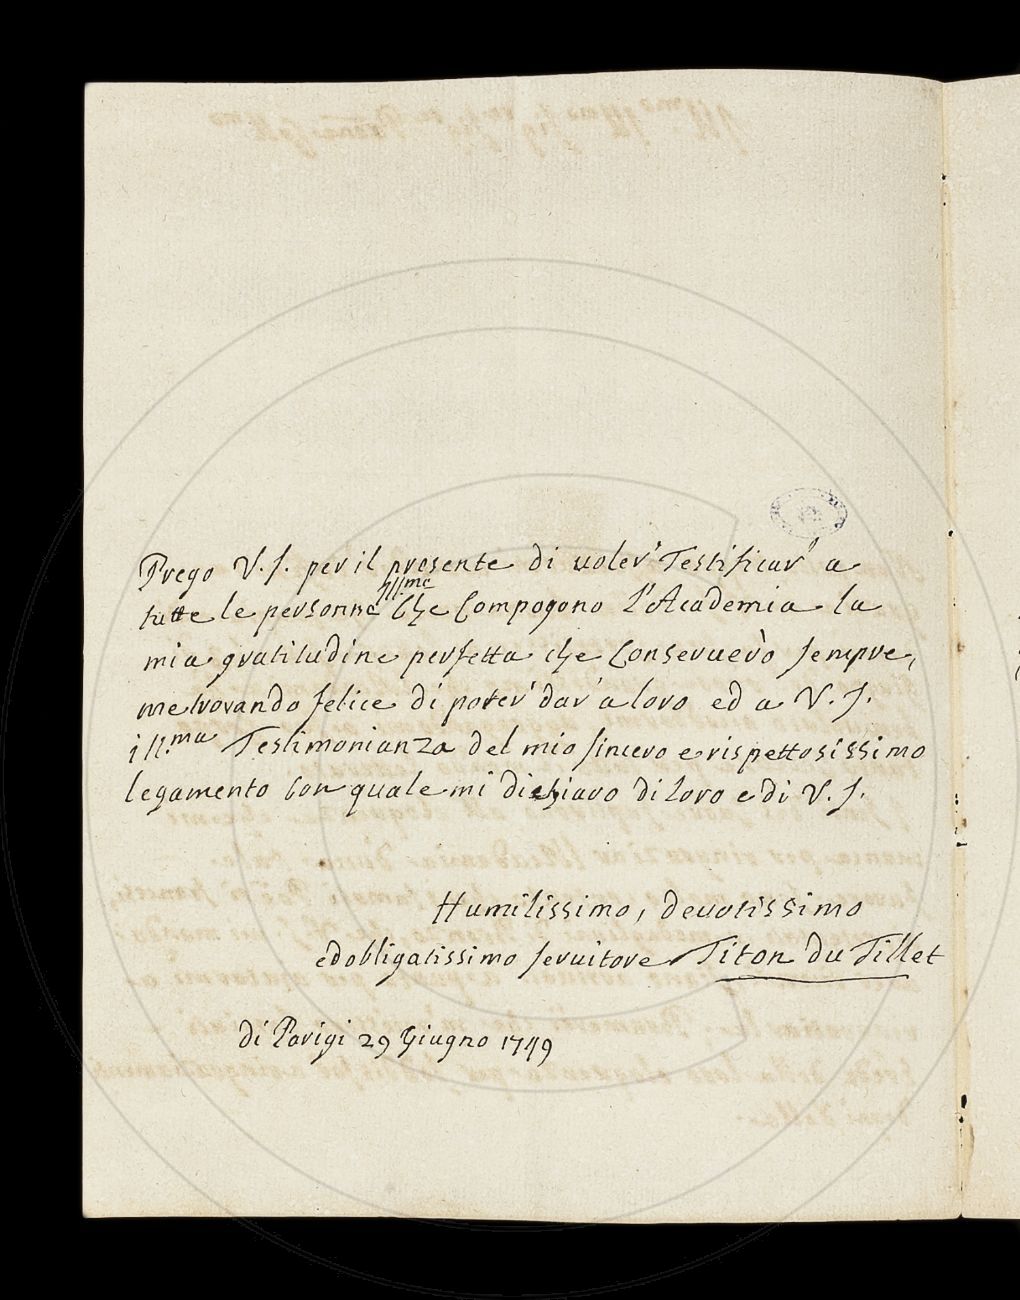 Prego V. S. per il presente di uoler' Testificar' a
tutte le personne Ill.me Che Compogono l'Academia la
mia gratitudine perfetta che Conseruerò sempre,
me trovando felice di poter' dar' a loro ed a V. S.
ill.ma Testimonianza del mio sincero e rispettosissimo
legamento Con quale mi dichiaro di loro e di V. S.
Humilissimo, devotissimo
ed obligatissimo seruitore Titon Du Tillet
di Parigi 29 Giugno 1749